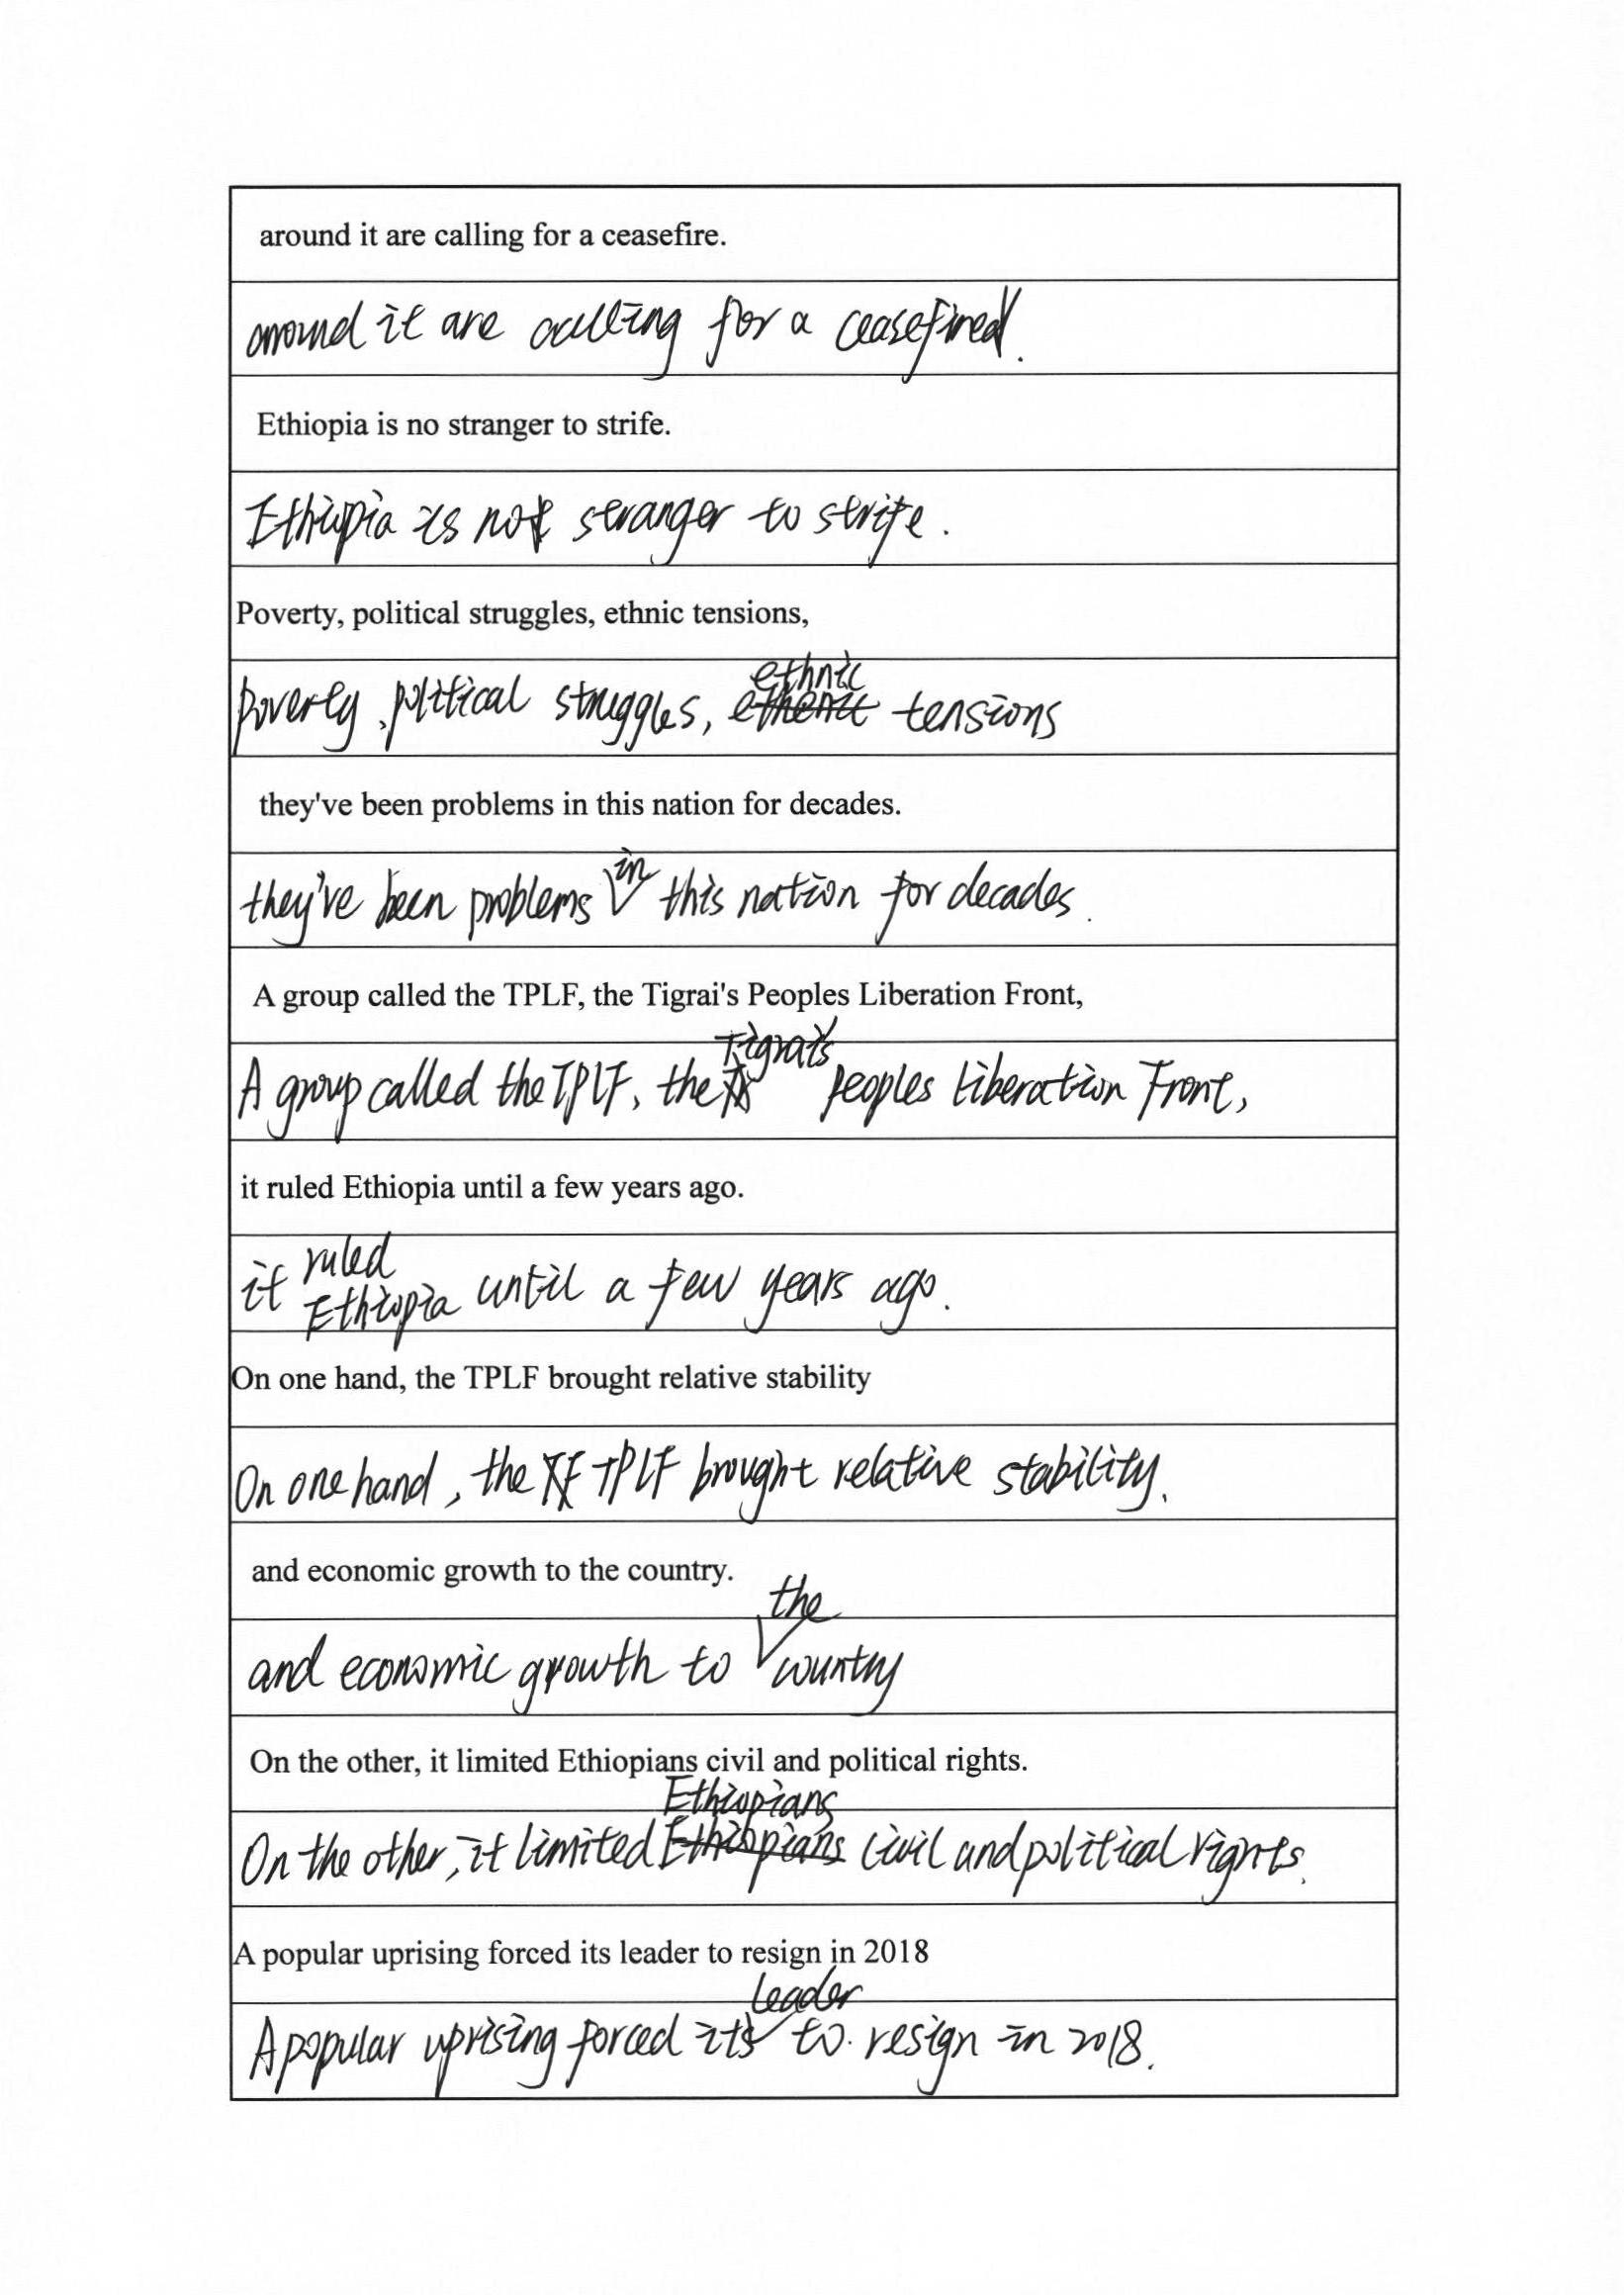 around it are calling for a ceasefire.
around it are calling for a ceasefire.
Ethiopia is no stranger to strife.
Ethiopia is no stranger to strife.
Poverty, political struggles, ethnic tensions,
Poverty, political struggles, ethnic tensions
they've been problems in this nation for decades.
they've been problems in this nation for decades.
A group called the TPLF, the Tigrai's Peoples Liberation Front,
A group called the TPLF, the Tigrai's Peoples Liberation Front,
it ruled Ethiopia until a few years ago.
it ruled Ethiopia until a few years ago.
On one hand, the TPLF brought relative stability
On one hand, the TPLF brought relative stability,
and economic growth to the country.
and economic growth to the country
On the other, it limited Ethiopians civil and political rights.
On the other, it limited Ethiopians civil and political rights.
A popular uprising forced its leader to resign in 2018
A popular uprising forced its leader to resign in 2018.